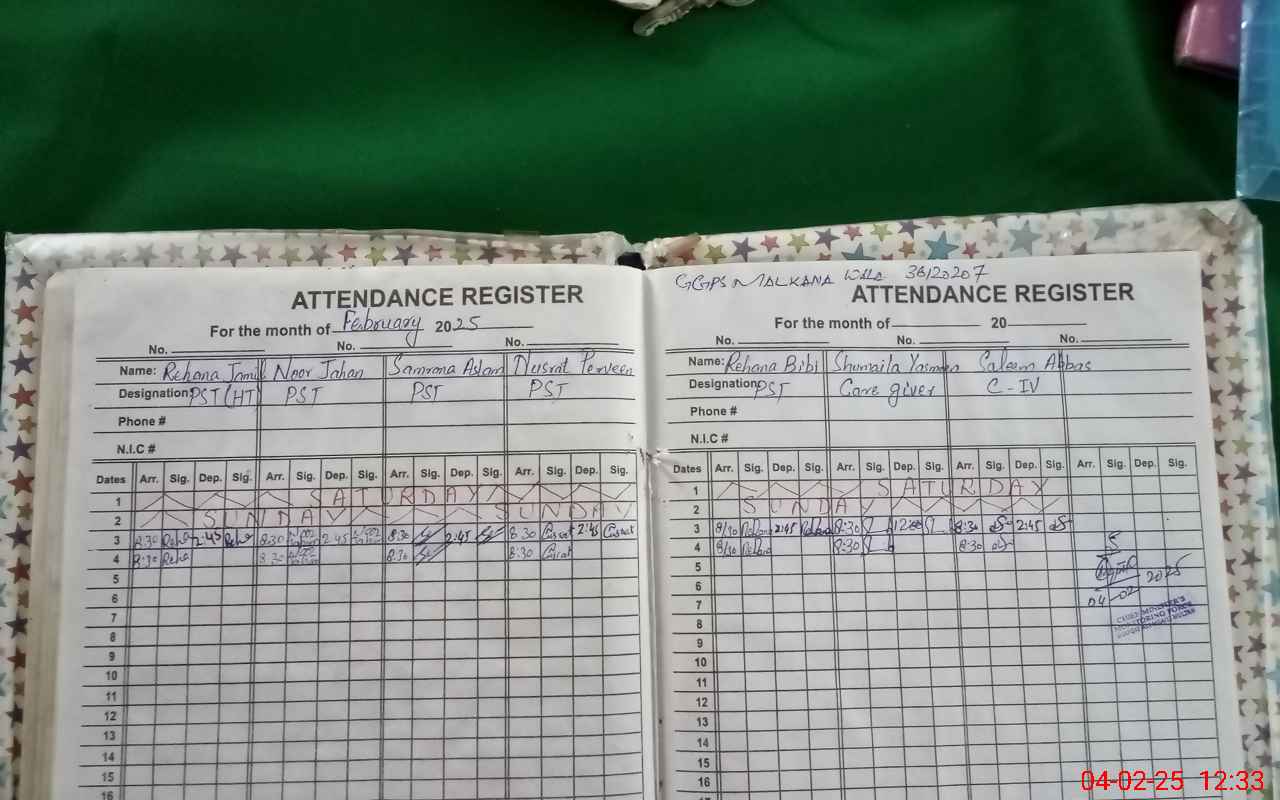 ATTENDANCE REGISTER
For the month of February 2025
No. No. No.
Name: Rehana Jamil Noor Jahan Samrana Aslam Nusrat Perveen
Designation PST (HT) PST PST PST
Phone #
N.I.C #
Dates Arr. Sig. Dep. Sig. Arr. Sig. Dep. Sig. Arr. Sig. Dep. Sig. Arr. Sig. Dep. Sig.
1 SATURDAY
2 SUNDAY SUNDAY
3 8:30 2:45 8:30 2:45 8:30 2:45 8:30 2:45
4 8:30 8:30 8:30 8:30
5
6
7
8
9
10
11
12
13
14
15
16
GGPS MALKANA WALA 36120207
ATTENDANCE REGISTER
For the month of 20
No. No. No.
Name: Rehana Bibi Shumaila Yasmeen Saleem Abbas
Designation PST Care giver C-IV
Phone #
N.I.C #
Dates Arr. Sig. Dep. Sig. Arr. Sig. Dep. Sig. Arr. Sig. Dep. Sig. Arr. Sig. Dep. Sig.
1 SATURDAY
2 SUNDAY
3 8/30 2:45 8:30 12:00 8:30 2:45
4 8/30 8:30 8:30
5
6
7
8
9
10
11
12
13
14
15
16
04-02-2025
CHIEF MINISTER'S
MONITORING FORCE
04-02-25 12:33